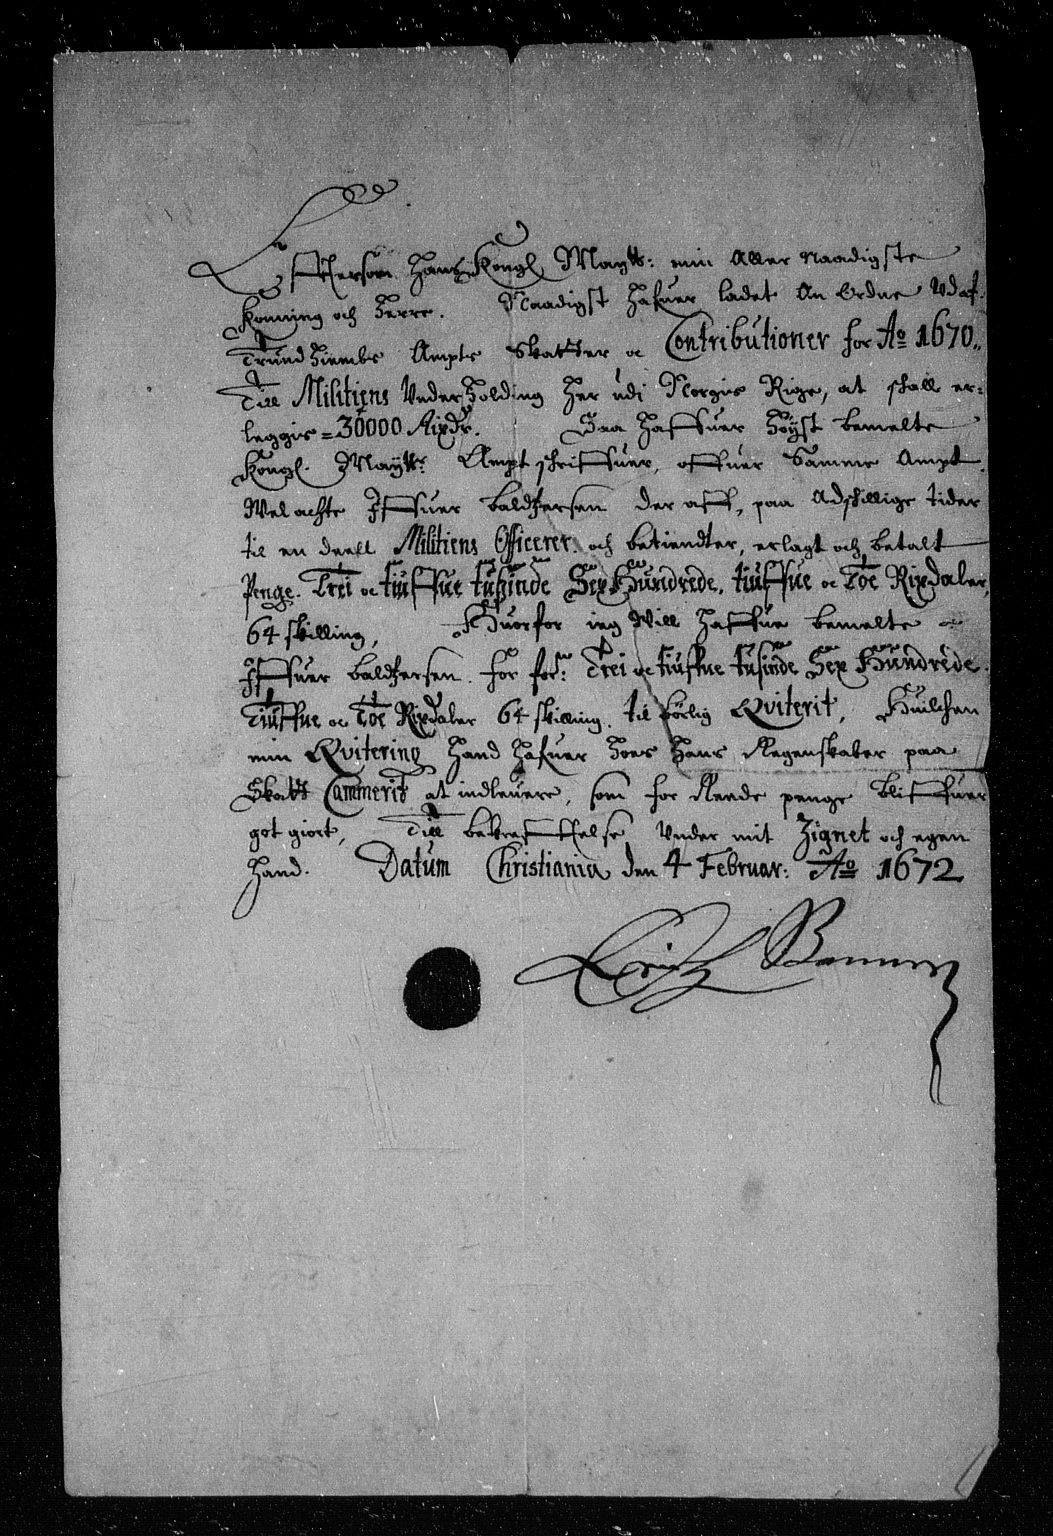 Eftersom Hans Kongl Maytt: min Aller Naadigste
Konning och Herre. Naadigst hafuer ladet An Ordne Udaf
Trundhiembs Ampts Skatter oc Contributioner for Ao 1670..
Till Militiens Underholding her udi Norgis Rige, at schall er=
leggis = 30000 Rixdr. Saa haffuer Høyst bemelte
Kongl. Maytts Ampt schriffuer, offuer Samme Ampt
Wel achte Iffuer Baldtzersen der aff, paa Adschillige tider
til en deell Militiens Officerer och betiendter, erlagt och betalt
Penge. Trei oc tiuffue tusinde Sex Hundrede, tiuffue oc Toe Rixdaler,
64 skilling, Huorfor ieg Will haffue bemelte
Iffuer Baldtzersen. for forn: Trei oc tiuffue tusinde Sex Hundrede.
Tiuffue oc Toe Rixdaler 64 skilling. til børlig Qviterit, Huilchen
min Qvitering hand hafuer hoes hans Regenskaber paa
Skatt Cammerit at indleuere, som for Reede penge bliffuer
got giort, Till bekrefftelse Under mit Zignet och egen
Hand. Datum Christiania den 4 Februar: Ao 1672